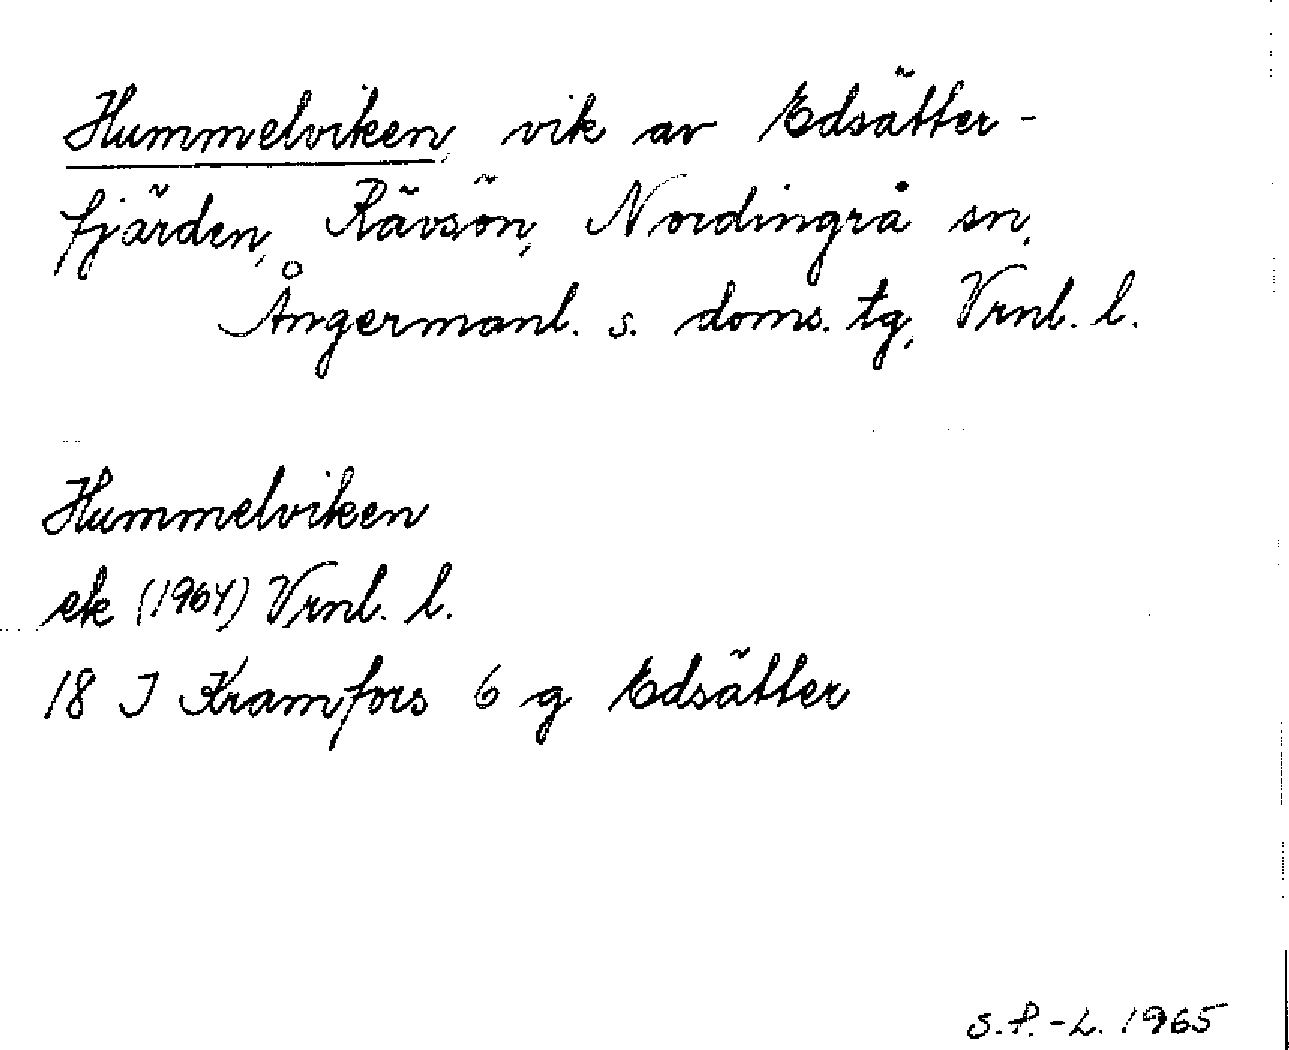 Hummelviken, vik av Edsätter-
fjärden, Rävsön, Nordingrå sn,
Ångermanl. s. doms. tg, Vrnl. l.
Hummelviken
ek (1964) Vrnl. l.
18 J Kramfors 6 g Edsätter
S.P.-L. 1965